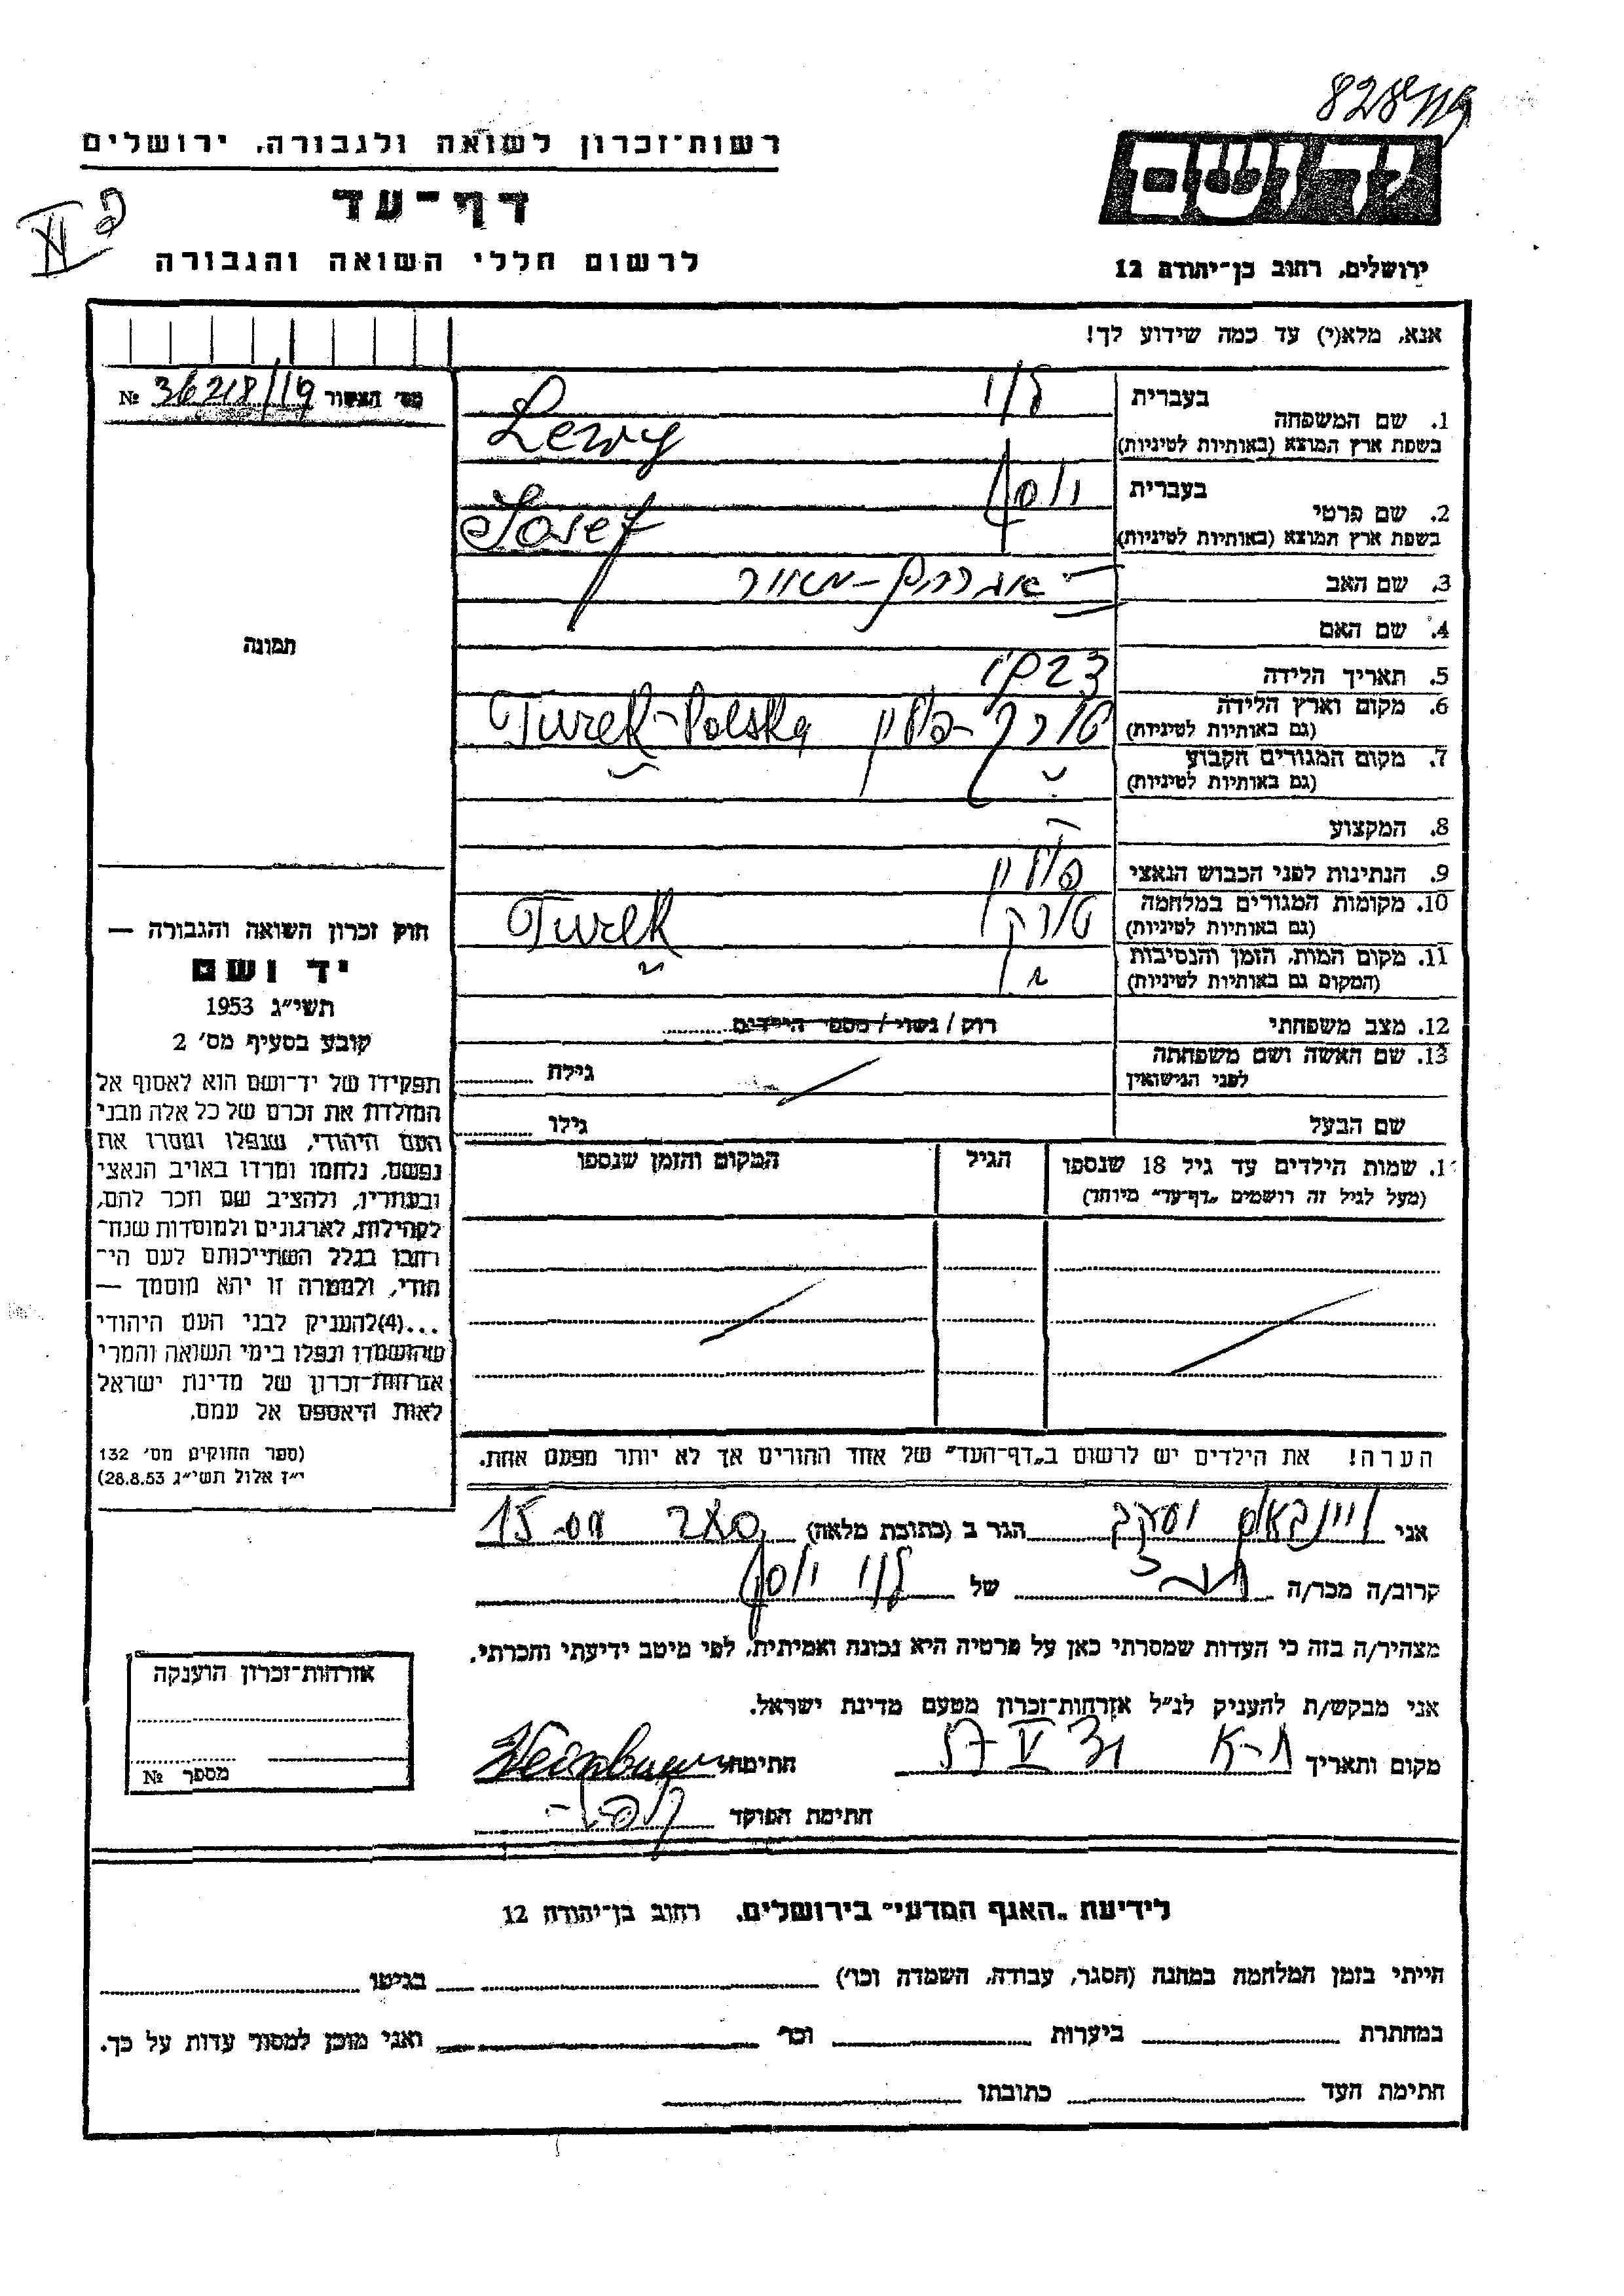 רשות־זכרון לשואה ולגבורה, ירושלים
דף־עד
לרשום חללי השואה והגבורה
ירושלים, רחוב בן־יהודה 12
אנא, מלא(י) עד כמה שידוע לך!
מס׳ תצשור № 36218/19
1. שם המשפחה
בעברית לוי
בשפת ארץ המוצא (באותיות לטיניות) Lewy
2. שם פרטי
בעברית יוסף
בשפת ארץ המוצא (באותיות לטיניות) Josef
3. שם האב
4. שם האם
5. תאריך הלידה
6. מקום וארץ הלידה
(גם באותיות לטיניות) טורק - פולין Turek-Polska
7. מקום המגורים הקבוע
(גם באותיות לטיניות)
8. המקצוע
9. הנתינות לפני הכבוש הנאצי פולין
10. מקומות המגורים במלחמה
(גם באותיות לטיניות) טורק Turek
11. מקום המות, הזמן והנסיבות
(המקום גם באותיות לטיניות)
12. מצב משפחתי רוק / נשוי / מספר הילדים
13. שם האשה ושם משפחתה
לפני הנישואין גילה
שם הבעל גילו
שמות הילדים עד גיל 18 שנספו הגיל המקום והזמן שנספו
(מעל לגיל זה רושמים „דף־עד” מיוחד)
הערה! את הילדים יש לרשום ב„דף־העד” של אחד ההורים אך לא יותר מפעם אחת.
תמונה
חוק זכרון השואה והגבורה —
יד ושם
תשי״ג 1953
קובע בסעיף מס׳ 2
תפקידו של יד־ושם הוא לאסוף אל
המולדת את זכרם של כל אלה מבני
העם היהודי, שנפלו ומסרו את
נפשם, נלחמו ומרדו באויב הנאצי
ובעוזריו, ולהציב שם וזכר להם,
לקהילות, לארגונים ולמוסדות שנח־
רבו בגלל השתייכותם לעם הי־
הודי, ולמטרה זו יהא מוסמך —
...(4)להעניק לבני העם היהודי
שהושמדו ונפלו בימי השואה והמרי
אזרחות־זכרון של מדינת ישראל
לאות היאספם אל עמם.
(ספר החוקים מס׳ 132
י״ז אלול תשי״ג 28.8.53)
אני ויינבאום יעקב הגר ב (כתובת מלאה)
קרוב/ה מכר/ה של לוי יוסף
מצהיר/ה בזה כי העדות שמסרתי כאן על פרטיה היא נכונה ואמיתית, לפי מיטב ידיעתי והכרתי.
אני מבקש/ת להעניק לנ״ל אזרחות־זכרון מטעם מדינת ישראל.
מקום ותאריך ת-א 31 V 57 חתימה Weinbaum
חתימת הפוקד
אזרחות־זכרון הוענקה
מספר №
לידיעת „האגף המדעי” בירושלים, רחוב בן־יהודה 12
הייתי בזמן המלחמה במחנה (הסגר, עבודה, השמדה וכו׳) בגיטו
במחתרת ביערות וכו׳ ואני מוכן למסור עדות על כך.
חתימת העד כתובתו